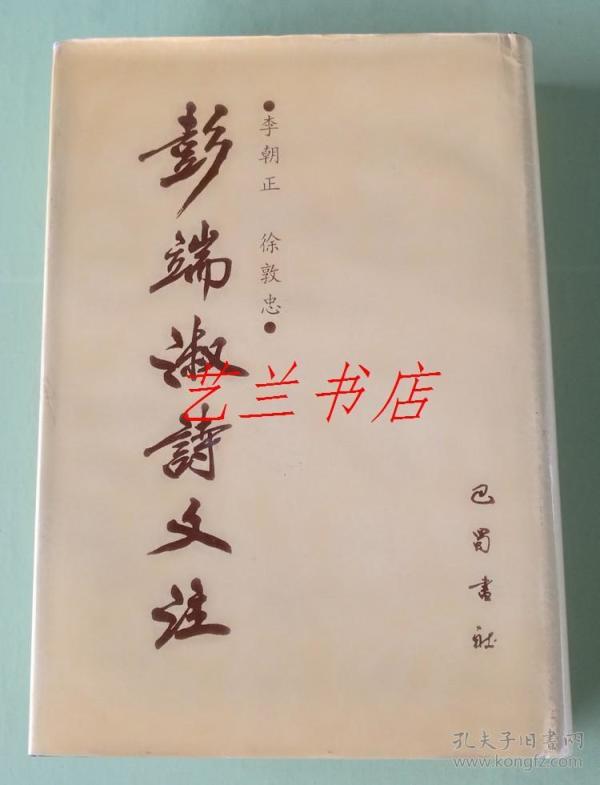 彭端淑詩文注
●李朝正 徐敦忠●
巴蜀書社
艺兰书店
孔夫子旧書网
www.kongfz.com